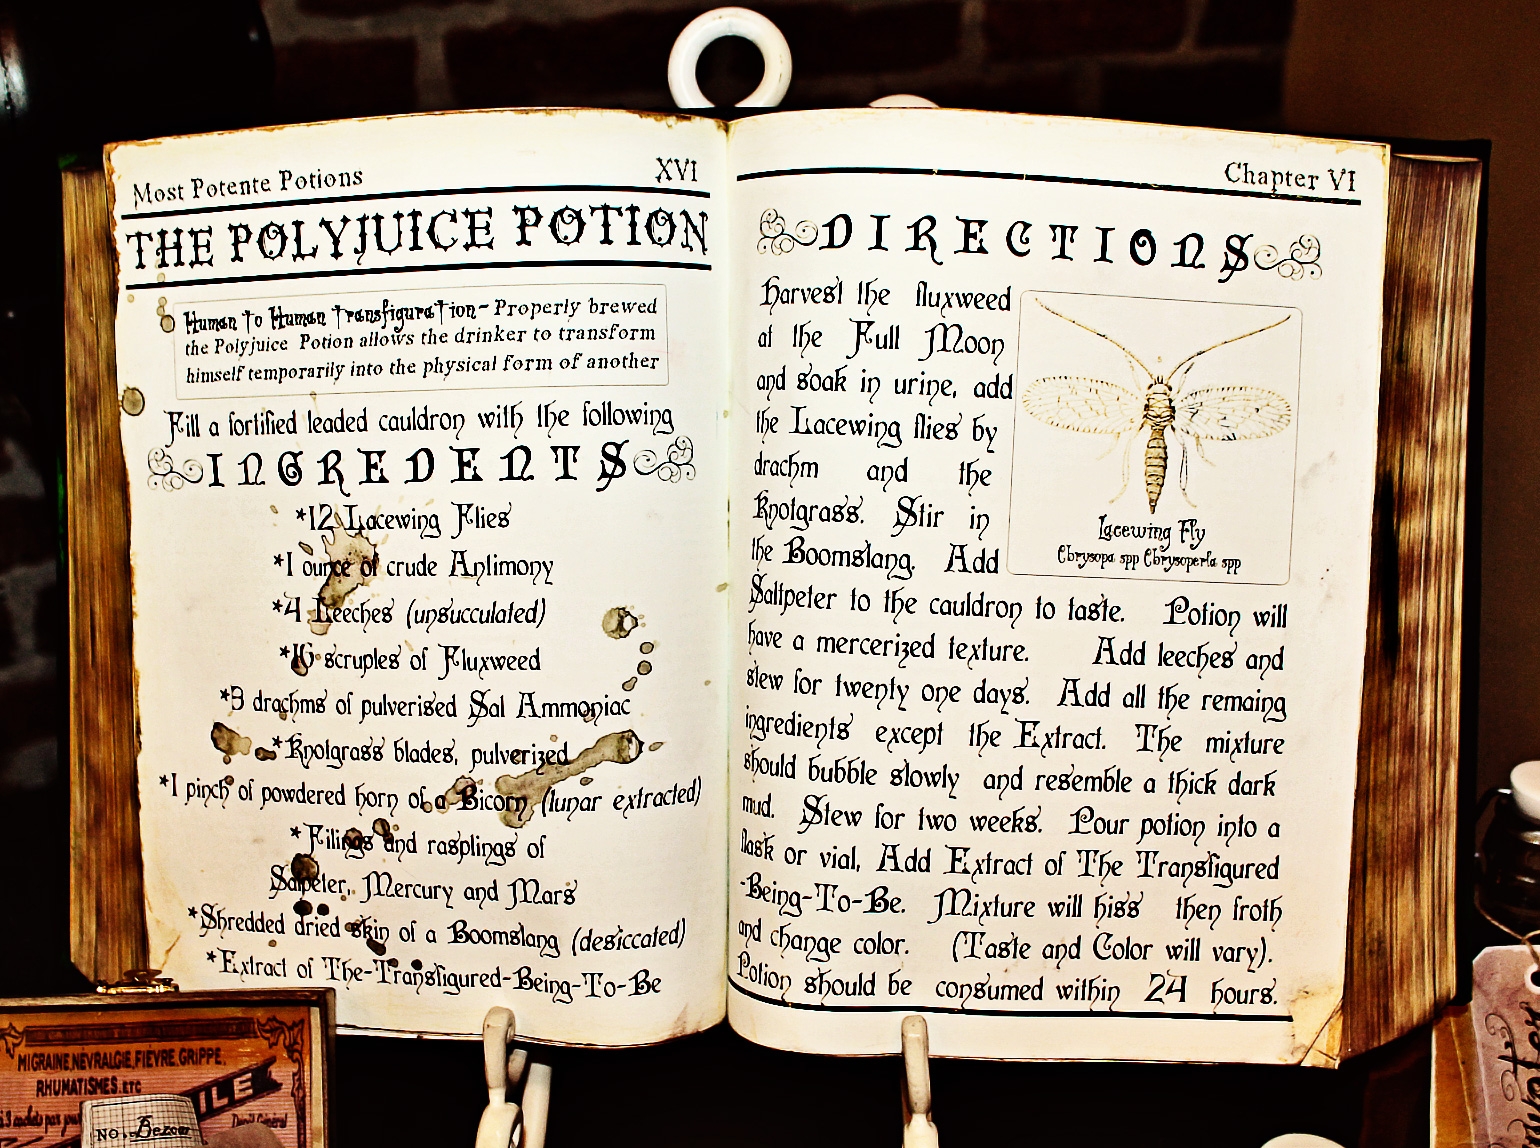 Most Potente Potions XVI
THE POLYJUICE POTION
Human to Human Transfiguration- Properly brewed
the Polyjuice Potion allows the drinker to transform
himself temporarily into the physical form of another
Fill a fortified leaded cauldron with the following
INGREDENTS
*12 Lacewing Flies
*1 ounce of crude Antimony
*4 Leeches (unsucculated)
*16 scruples of Fluxweed
*3 drachms of pulverised Sal Ammoniac
*Knotgrass blades, pulverized
*1 pinch of powdered horn of a Bicorn (lunar extracted)
*Filings and rasplings of
Saltpeter, Mercury and Mars
*Shredded dried skin of a Boomslang (desiccated)
*Extract of The-Transfigured-Being-To-Be
Chapter VI
DIRECTIONS
Harvest the fluxweed
at the Full Moon
and soak in urine, add
the Lacewing flies by
drachm and the
Knotgrass. Stir in
the Boomslang. Add
Saltpeter to the cauldron to taste. Potion will
have a mercerized texture. Add leeches and
stew for twenty one days. Add all the remaing
ingredients except the Extract. The mixture
should bubble slowly and resemble a thick dark
mud. Stew for two weeks. Pour potion into a
flask or vial, Add Extract of The Transfigured
-Being-To-Be. Mixture will hiss then froth
and change color. (Taste and Color will vary).
Potion should be consumed within 24 hours.
Lacewing Fly
Chrysopa spp Chrysoperla spp
MIGRAINE, NÉVRALGIE, FIÈVRE, GRIPPE,
RHUMATISMES, ETC
ILE
NO. Bezoar